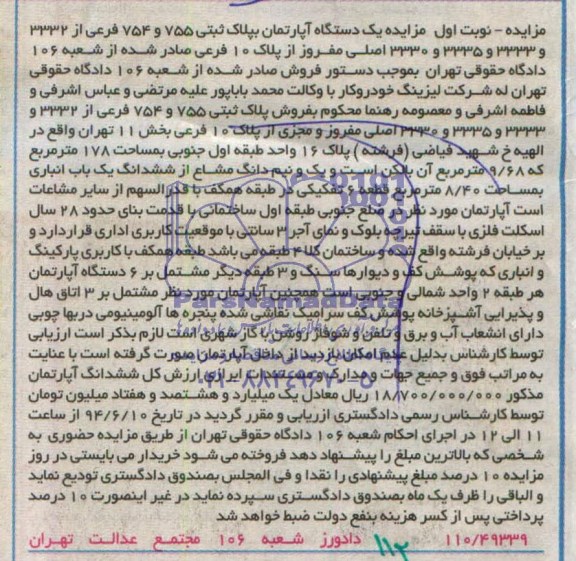 مزایده - نوبت اول مزایده یک دستگاه آپارتمان بپلاک ثبتی ۷۵۵ و ۷۵۴ فرعی از ۳۳۳۲
و ۳۳۳۳ و ۳۳۳۵ و ۳۳۳۰ اصلی مفروز از پلاک ۱۰ فرعی صادر شده از شعبه ۱۰۶
دادگاه حقوقی تهران بموجب دستور فروش صادر شده از شعبه ۱۰۶ دادگاه حقوقی
تهران له شرکت لیزینگ خودروکار با وکالت محمد باباپور علیه مرتضی و عباس اشرفی و
فاطمه اشرفی و معصومه رهنما محکوم بفروش پلاک ثبتی ۷۵۵ و ۷۵۴ فرعی از ۳۳۳۲ و
۳۳۳۳ و ۳۳۳۵ و ۳۳۳۰ اصلی مفروز و مجزی از پلاک ۱۰ فرعی بخش ۱۱ تهران واقع در
الهیه خ شهید فیاضی (فرشته) پلاک ۱۶ واحد طبقه اول جنوبی بمساحت ۱۷۸ مترمربع
که ۹/۶۸ مترمربع آن بالکن و یک و نیم دانگ مشاع از ششدانگ یک باب انباری
بمساحت ۸/۴۰ مترمربع قطعه ۶ تفکیکی در طبقه همکف با قدرالسهم از سایر مشاعات
است آپارتمان مورد نظر در ضلع جنوبی طبقه اول ساختمانی با قدمت بنای حدود ۲۸ سال
اسکلت فلزی با سقف تیرچه بلوک و نمای آجر ۳ سانتی با موقعیت کاربری اداری قرار دارد و
بر خیابان فرشته واقع شده و ساختمان کلا ۴ طبقه می باشد طبقه همکف با کاربری پارکینگ
و انباری که پوشش کف و دیوارها سنگ و ۳ طبقه دیگر مشتمل بر ۶ دستگاه آپارتمان
هر طبقه ۲ واحد شمالی و جنوبی است همچنین آپارتمان مورد نظر مشتمل بر ۳ اتاق هال
و پذیرایی آشپزخانه پوشش کف سرامیک نقاشی شده پنجره ها آلومینیومی دربها چوبی
دارای انشعاب آب و برق و تلفن و شوفاژ روشن با گاز شهری است لازم بذکر است ارزیابی
توسط کارشناس بدلیل عدم امکان بازدید از داخل آپارتمان صورت گرفته است با عنایت
به مراتب فوق و جمیع جهات و مدارک و مستحدثات ابرازی ارزش کل ششدانگ آپارتمان
مذکور ۱۸/۷۰۰/۰۰۰/۰۰۰ ریال معادل یک میلیارد و هشتصد و هفتاد میلیون تومان
توسط کارشناس رسمی دادگستری ارزیابی و مقرر گردید در تاریخ ۹۴/۶/۱۰ از ساعت
۱۱ الی ۱۲ در اجرای احکام شعبه ۱۰۶ دادگاه حقوقی تهران از طریق مزایده حضوری به
شخصی که بالاترین مبلغ را پیشنهاد دهد فروخته می شود خریدار می بایستی در روز
مزایده ۱۰ درصد مبلغ پیشنهادی را نقدا و فی المجلس بصندوق دادگستری تودیع نماید
و الباقی را ظرف یک ماه بصندوق دادگستری سپرده نماید در غیر اینصورت ۱۰ درصد
پرداختی پس از کسر هزینه بنفع دولت ضبط خواهد شد
۱۱۰/۴۹۳۳۹ دادورز شعبه ۱۰۶ مجتمع عدالت تهران
۱۱۲
ParsNamadData
۰۲۱-۸۸۳۴۹۶۷۰-۵